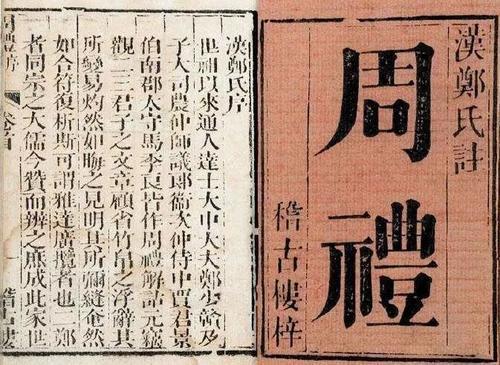 漢鄭氏註
周禮
稽古樓梓
漢鄭氏序
世祖以來通人達士大中大夫鄭少贛及
子大司農仲師議郎衛次仲侍中賈君景
伯南郡太守馬季長皆作周禮解詁元竊
觀二三君子之文章顧省竹帛之浮辭其
所變易灼然如晦之見明其所彌縫奄然
如合符復析斯可謂雅達廣攬者也二鄭
者同宗之大儒今贊而辨之庶成此家世
卷首 一 稽古樓